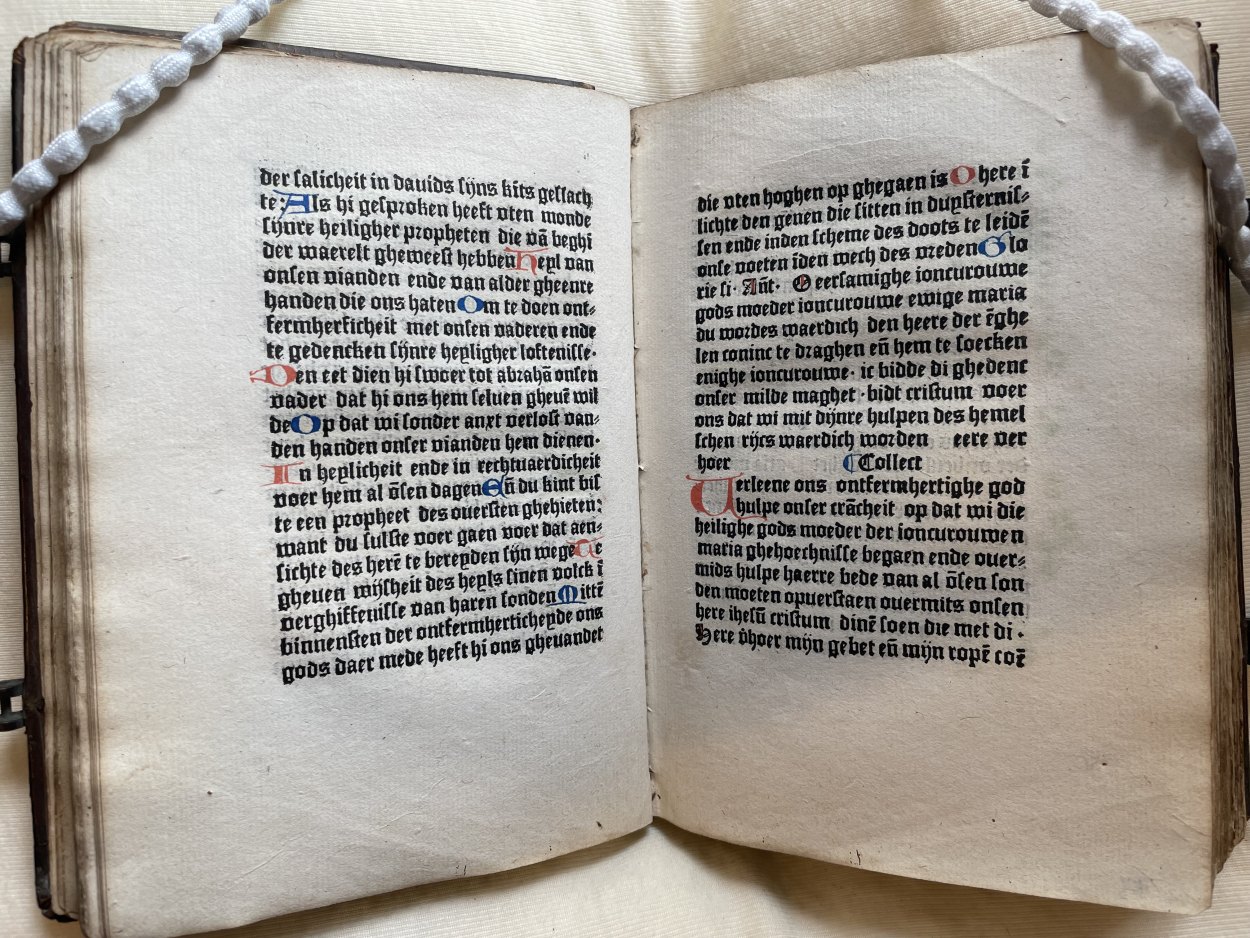 der salicheit in dauids sijns kits geslach
te: Als hi gesproken heeft vten monde
sijnre heiligher propheten die vā beghī
der waerelt gheweest hebben Heyl van
onsen vianden ende van alder gheenre
handen die ons haten Om te doen ont⸗
fermherticheit met onsen vaderen ende
te gedencken sijnre heyligher loftenisse·
Den eet dien hi swoer tot abrahā onsen
vader dat hi ons hem seluen gheuē wil
de Op dat wi sonder anxt verlost van⸗
den handen onser vianden hem dienen·
In heylicheit ende in rechtuaerdicheit
voer hem al ōsen dagen Eñ du kint bis
te een propheet des ouersten ghehieten:
want du sulste voer gaen voer dat aen⸗
sichte des herē te bereyden sijn wege Te
gheuen wijsheit des heyls sinen volck ī
verghiffenisse van haren sonden Mittē
binnensten der ontfermherticheyde ons
gods daer mede heeft hi ons gheuandet
die vten hoghen op ghegaen is O here ī
lichte den genen die sitten in duysternis⸗
sen ende inden scheme des doots te leidē
onse voeten īden wech des vreden Glo
rie si· Añt· O eersamighe ioncurouwe
gods moeder ioncurouwe ewige maria
du wordes waerdich den heere der ēghe
len coninc te draghen eñ hem te soecken
enighe ioncurouwe· ic bidde di ghedenc
onser milde maghet· bidt cristum voer
ons dat wi mit dijnre hulpen des hemel
schen rijcs waerdich worden eere ver
hoer Collect
Uerleene ons ontfermhertighe god
hulpe onser crācheit op dat wi die
heilighe gods moeder der ioncurouwen
maria ghehoechnisse begaen ende ouer⸗
mids hulpe haerre bede van al ōsen son
den moeten opuerstaen ouermits onsen
here ihesū cristum dinē soen die met di ·
Here v̄hoer mijn gebet eñ mijn ropē coē